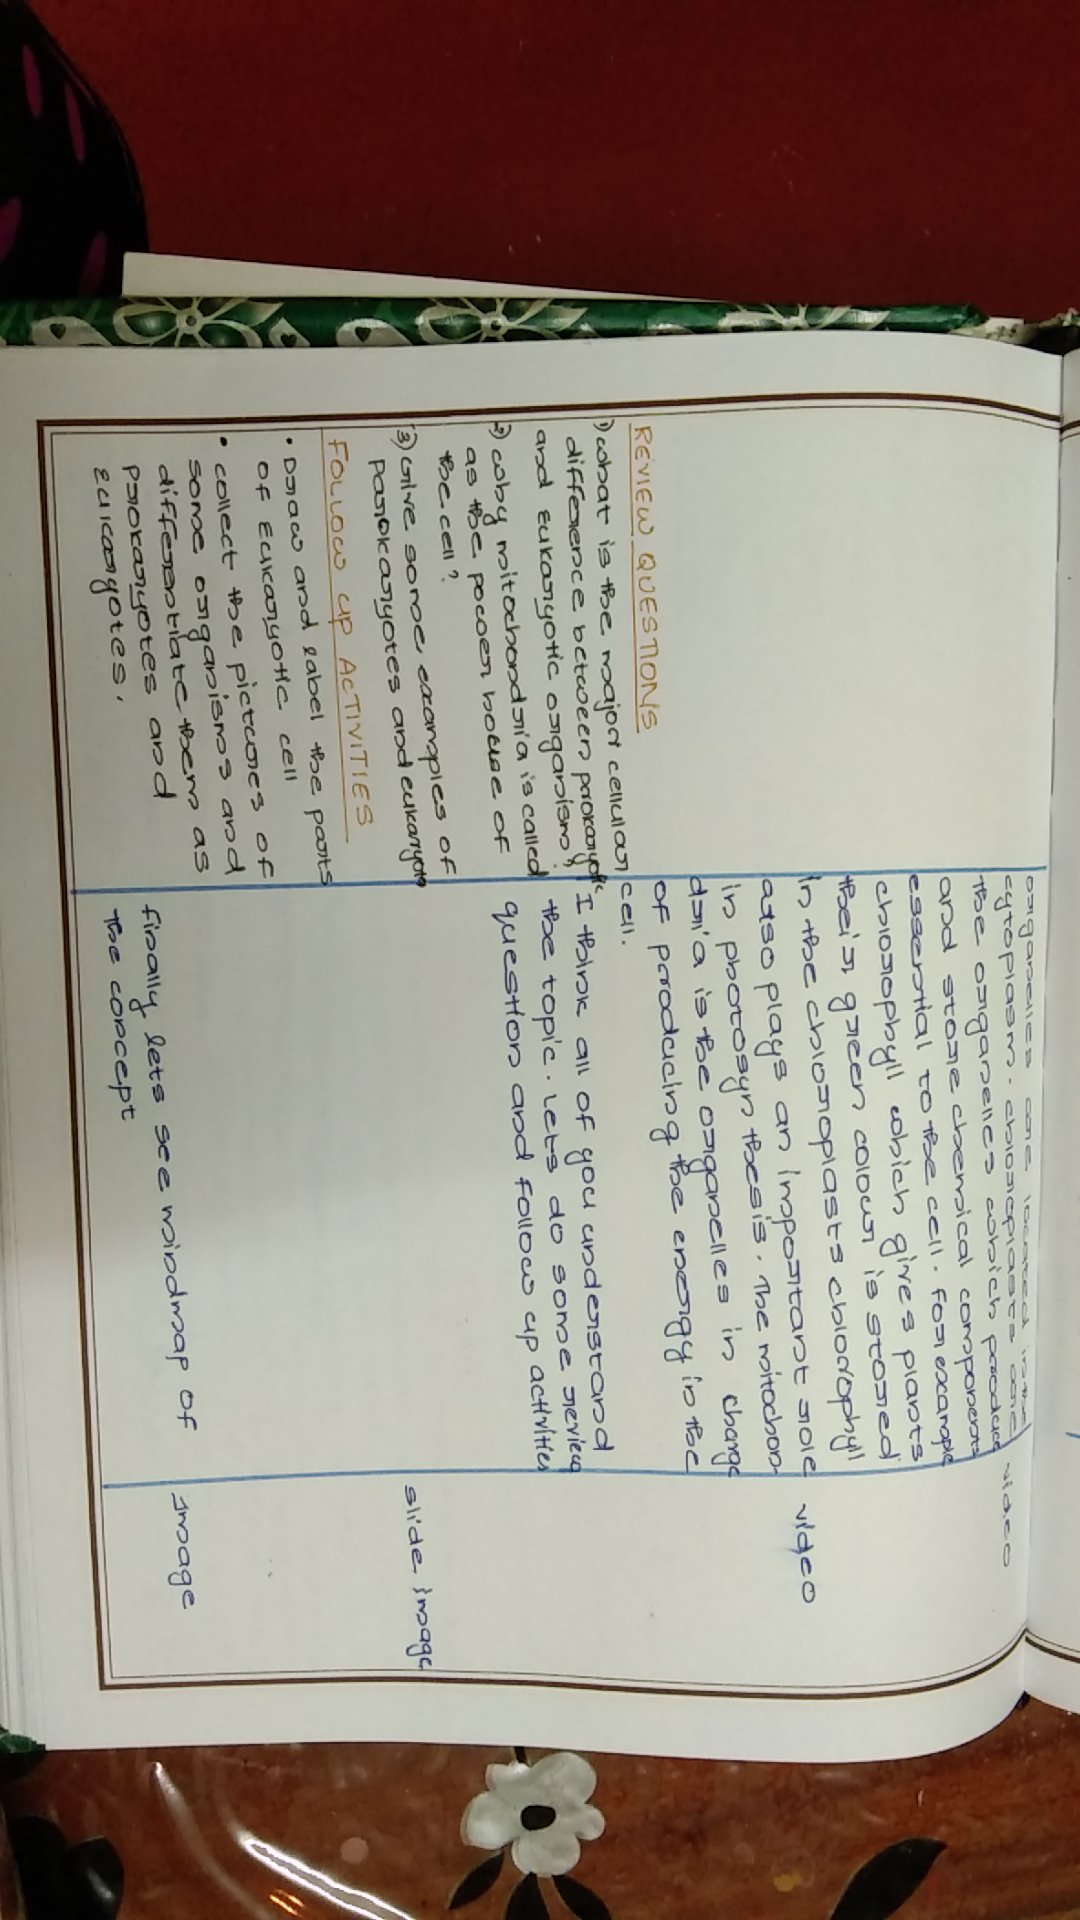 organelles are located in the
cytoplasm. chloroplasts are
the organelles which produce
and store chemical components
essential to the cell. for example
chlorophyll which gives plants
their green colour is stored
in the chloroplasts chlorophyll
also plays an important role
in photosynthesis. The mitochon-
dria is the organelles in charge
of producing the energy in the
cell.
video
video
REVIEW QUESTIONS
1) what is the major cellular
difference between prokaryotic
and Eukaryotic organisms?
2) why mitochondria is called
as the power house of
the cell?
3) Give some examples of
parokaryotes and eukaryote
FOLLOW UP ACTIVITIES
• Draw and label the parts
of Eukaryotic cell
• collect the pictures of
some organisms and
differentiate them as
prokaryotes and
eukaryotes.
I think all of you understand
the topic. Lets do some review
question and follow up activities
slide image
finally lets see mindmap of
the concept
Image